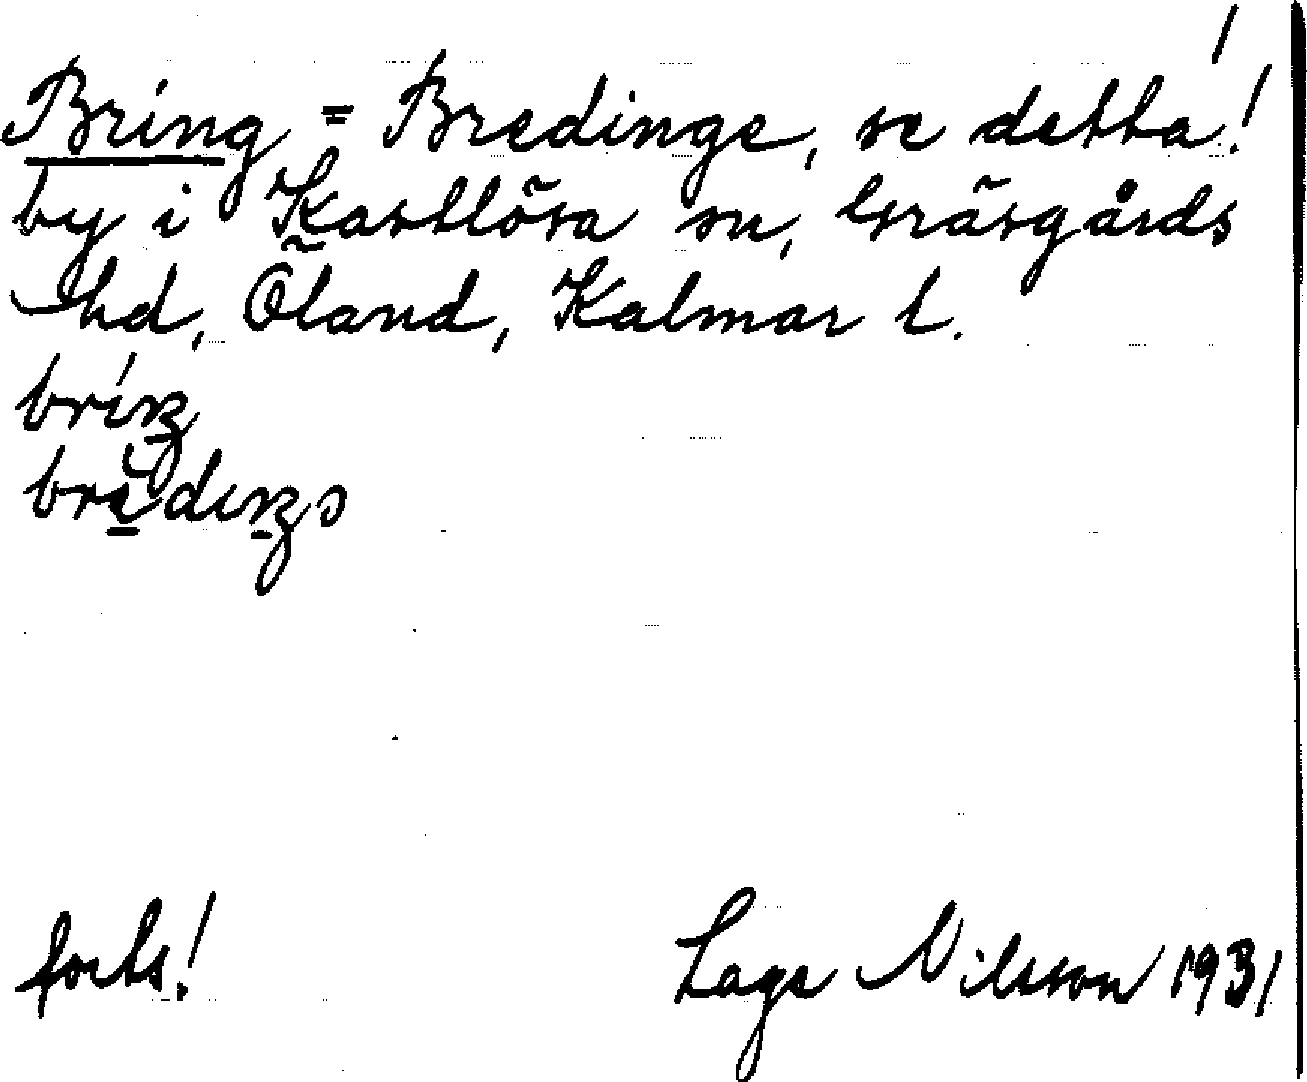 Bring = Bredinge, se detta!
by i Kastlösa sn, Gräsgårds
hd, Öland, Kalmar l.
forts! Lage Nilsson 1931